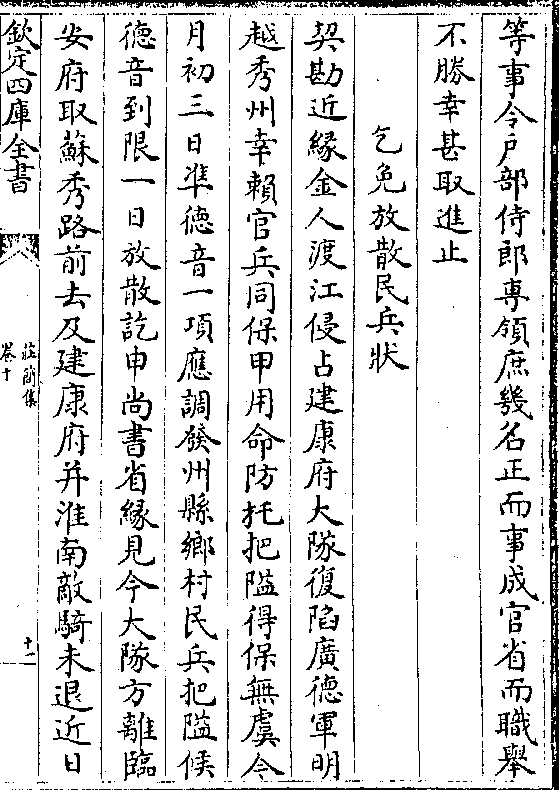 等事令戶部侍郎專領庶幾名正而事成官省而職舉
不勝幸甚取進止
乞免放散民兵狀
契勘近緣金人渡江侵占建康府大隊復陷廣德軍明
越秀州幸賴官兵同保甲用命防托把隘得保無虞今
月初三日準德音一項應調發州縣鄉村民兵把隘候
德音到限一日放散訖申尚書省緣見今大隊方離臨
安府取蘇秀路前去及建康府并淮南敵騎未退近日
欽定四庫全書
莊簡集
卷十
十一